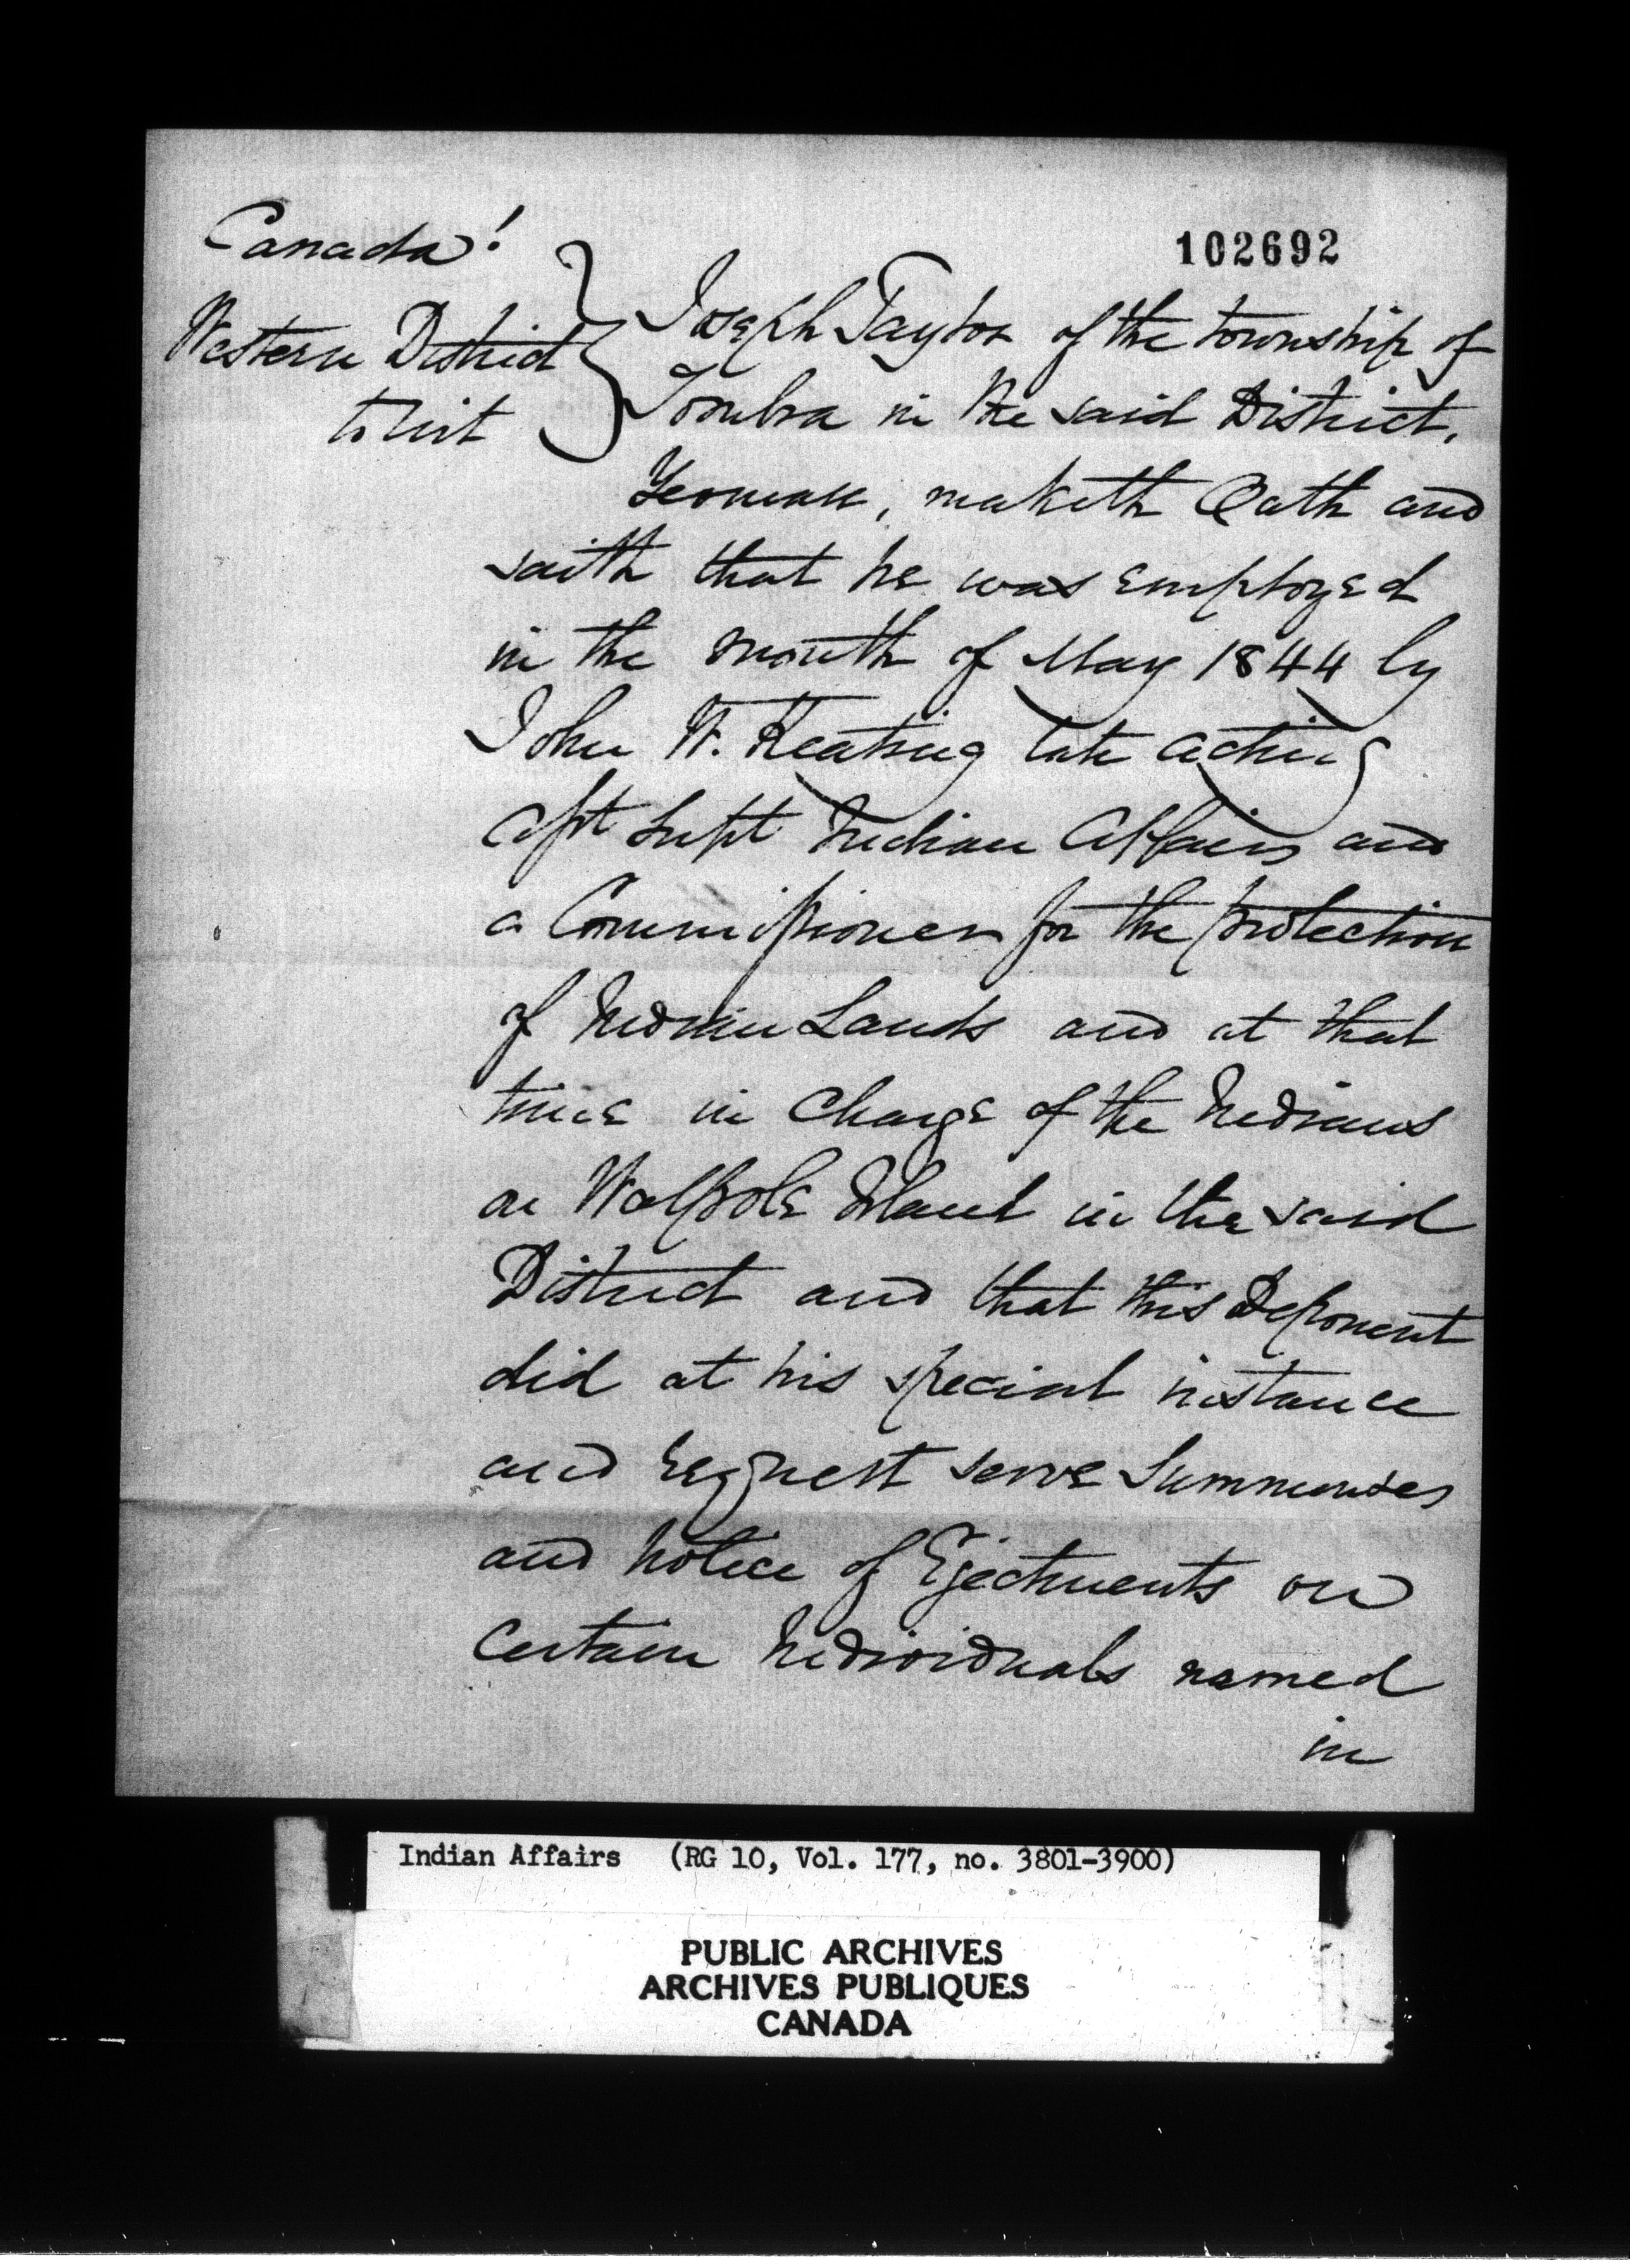 102692
Canada!
Western District
to wit
Joseph Taylor of the township of
Sombra in the said District,
Yeoman, maketh Oath and
saith that he was employed
in the month of May 1844 by
John W. Keating late acting
asst Supt Indian Affairs and
a Commissioner for the protection
of Indian Lands and at that
time in charge of the Indians
on Walpole Island in the said
District and that this Deponent
did at his special instance
and request serve Summonses
and notice of Ejectments on
certain Individuals named
in
Indian Affairs (RG 10, Vol. 177, no. 3801-3900)
PUBLIC ARCHIVES
ARCHIVES PUBLIQUES
CANADA